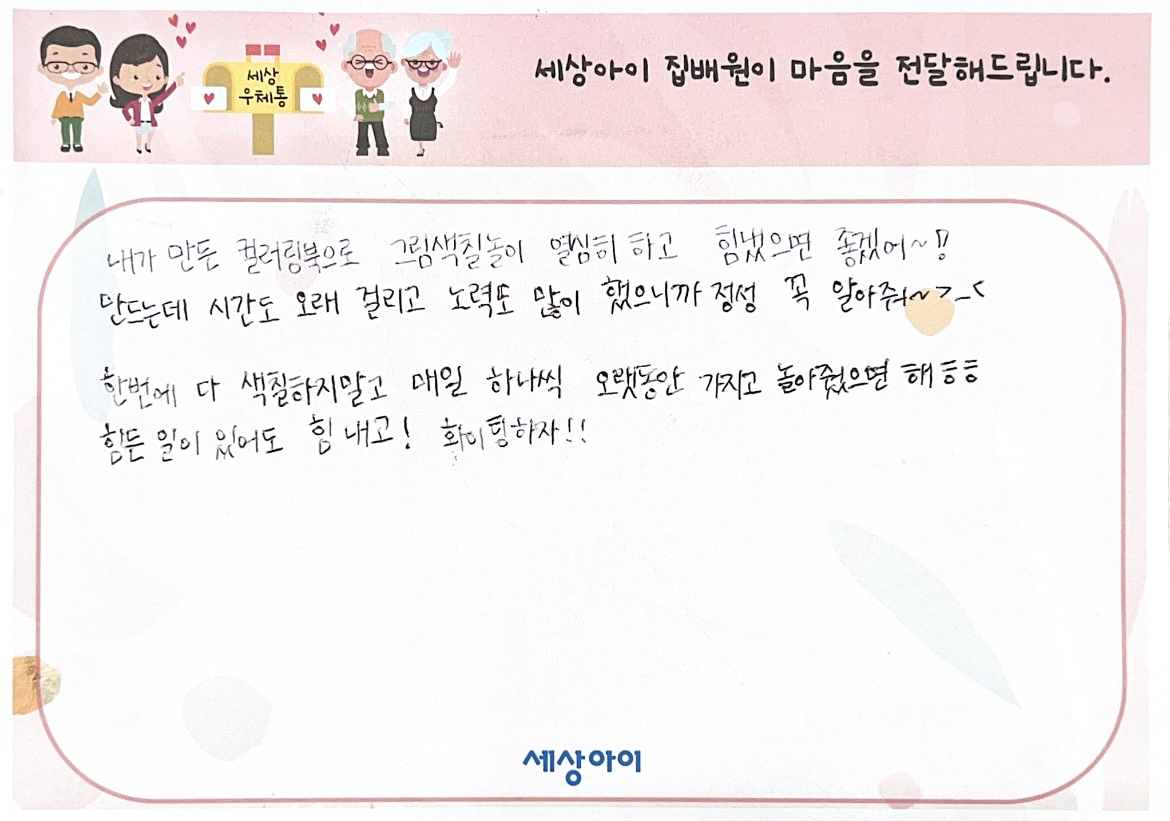 세상
우체통
세상아이 집배원이 마음을 전달해드립니다.
내가 만든 컬러링북으로 그림색칠놀이 열심히 하고 힘냈으면 좋겠어~!!
만드는데 시간도 오래 걸리고 노력또 많이 했으니까 정성 꼭 알아줘~ >_<
한번에 다 색칠하지말고 매일 하나씩 오랫동안 가지고 놀아줬으면 해 ㅎㅎ
힘든 일이 있어도 힘 내고! 화이팅하자!!
세상아이